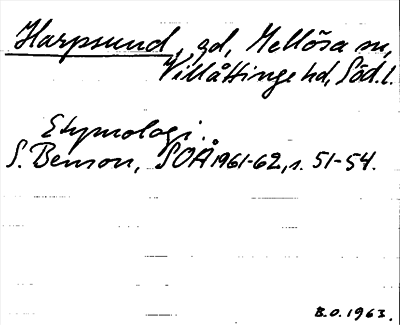 Harpsund, gd, Mellösa sn,
Villåttinge hd, Söd. l.
Etymologi.
S. Benson, SOÅ 1961-62, s. 51-54.
B.O. 1963.